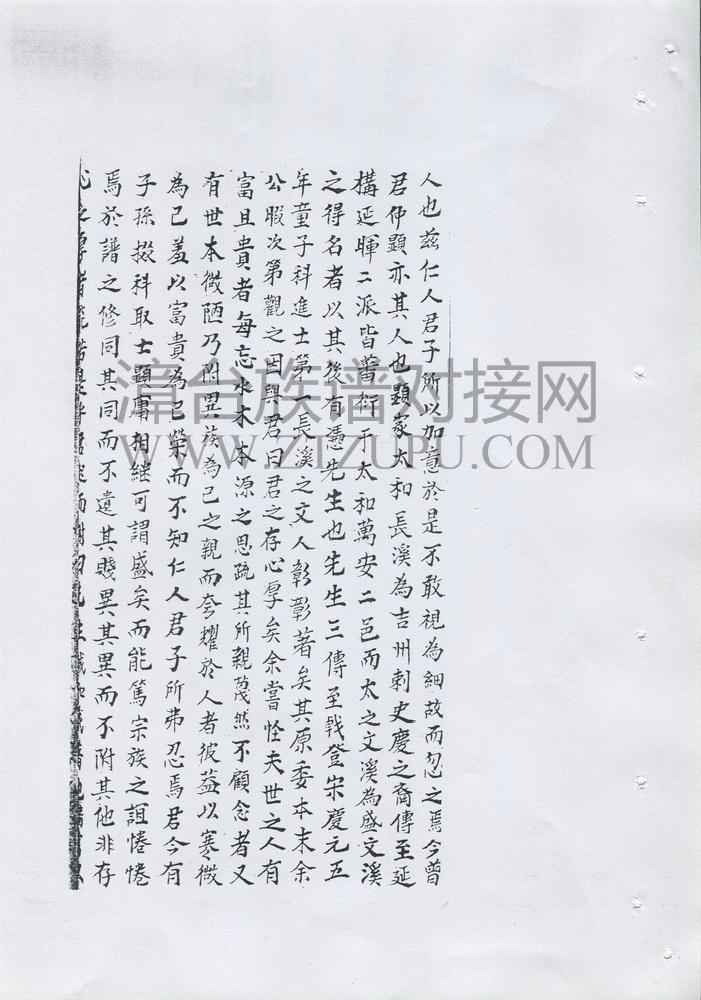 人也茲仁人君子所以加意於是不敢視為細故而忽之焉今曾
君仲顯亦其人也顯家太和長溪為吉州刺史慶之裔傳至延
構延暉二派皆蕃衍于太和萬安二邑而太之文溪為盛文溪
之得名者以其後有憑先生也先生三傳至戟登宋慶元五
年童子科進士第一長溪之文人彰彰著矣其原委本末余
公暇次第觀之因與君曰君之存心厚矣余嘗怪夫世之人有
富且貴者每忘水木本源之思疏其所親茂然不顧念者又
有世本微陋乃附異族為己之親而夸耀於人者彼葢以寒微
為已羞以富貴為已榮而不知仁人君子所弗忍焉君今有
子孫掇科取士顕庸相継可謂盛矣而能篤宗族之誼惓惓
焉於譜之修同其同而不遺其賤異其異而不附其他非存
心之厚者能
漳台族谱对接网
WWW.ZIZUPU.COM